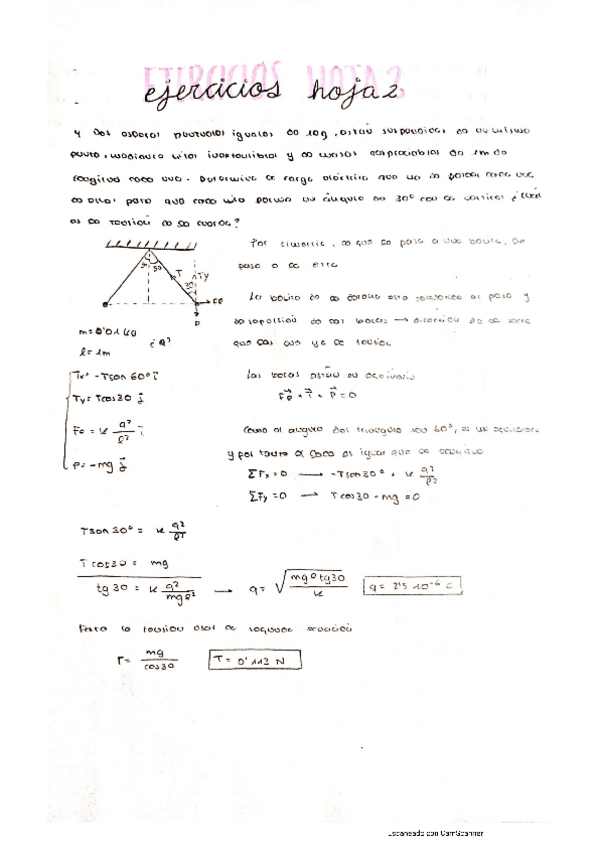 ejercicios hoja 2
4 Dos esferas puntuales iguales de 10g, están suspendidas en un mismo
punto, mediante hilos inextensibles y de masas despreciables de 1m de
longitud cada uno. Determine la carga eléctrica que ha de poseer cada una
de ellas para que cada hilo forme un ángulo de 30° con la vertical ¿cuál
es la tensión de la cuerda?
Por simetría, lo que le pasa a una bolita, le
pasa a la otra
30
T
Ty
30
Fe
P
m = 0'01 kg
l = 1m
¿q?
La bolita de la derecha está sometida al peso y
que las une y a la tensión
Tx = -Tsen 60° i
Ty = Tcos30 j
Fe = K q²/l² i
P = -mg j
Las bolas están en equilibrio
Fe + T + P = 0
Como el ángulo del triángulo son 60°, es un equilátero
y por tanto el lado es igual que la longitud
ΣFx = 0 → -Tsen30° + K q²/l²
ΣFy = 0 → T cos30 - mg = 0
Tsen 30° = K q²/l²
T cos30 = mg
tg 30 = K q²/mgl² → q = √(mgl tg30/K)
q = 2'5 10⁻⁶ C
Para la tensión usar la segunda ecuación
T = mg/cos30
T = 0'113 N
Escaneado con CamScanner